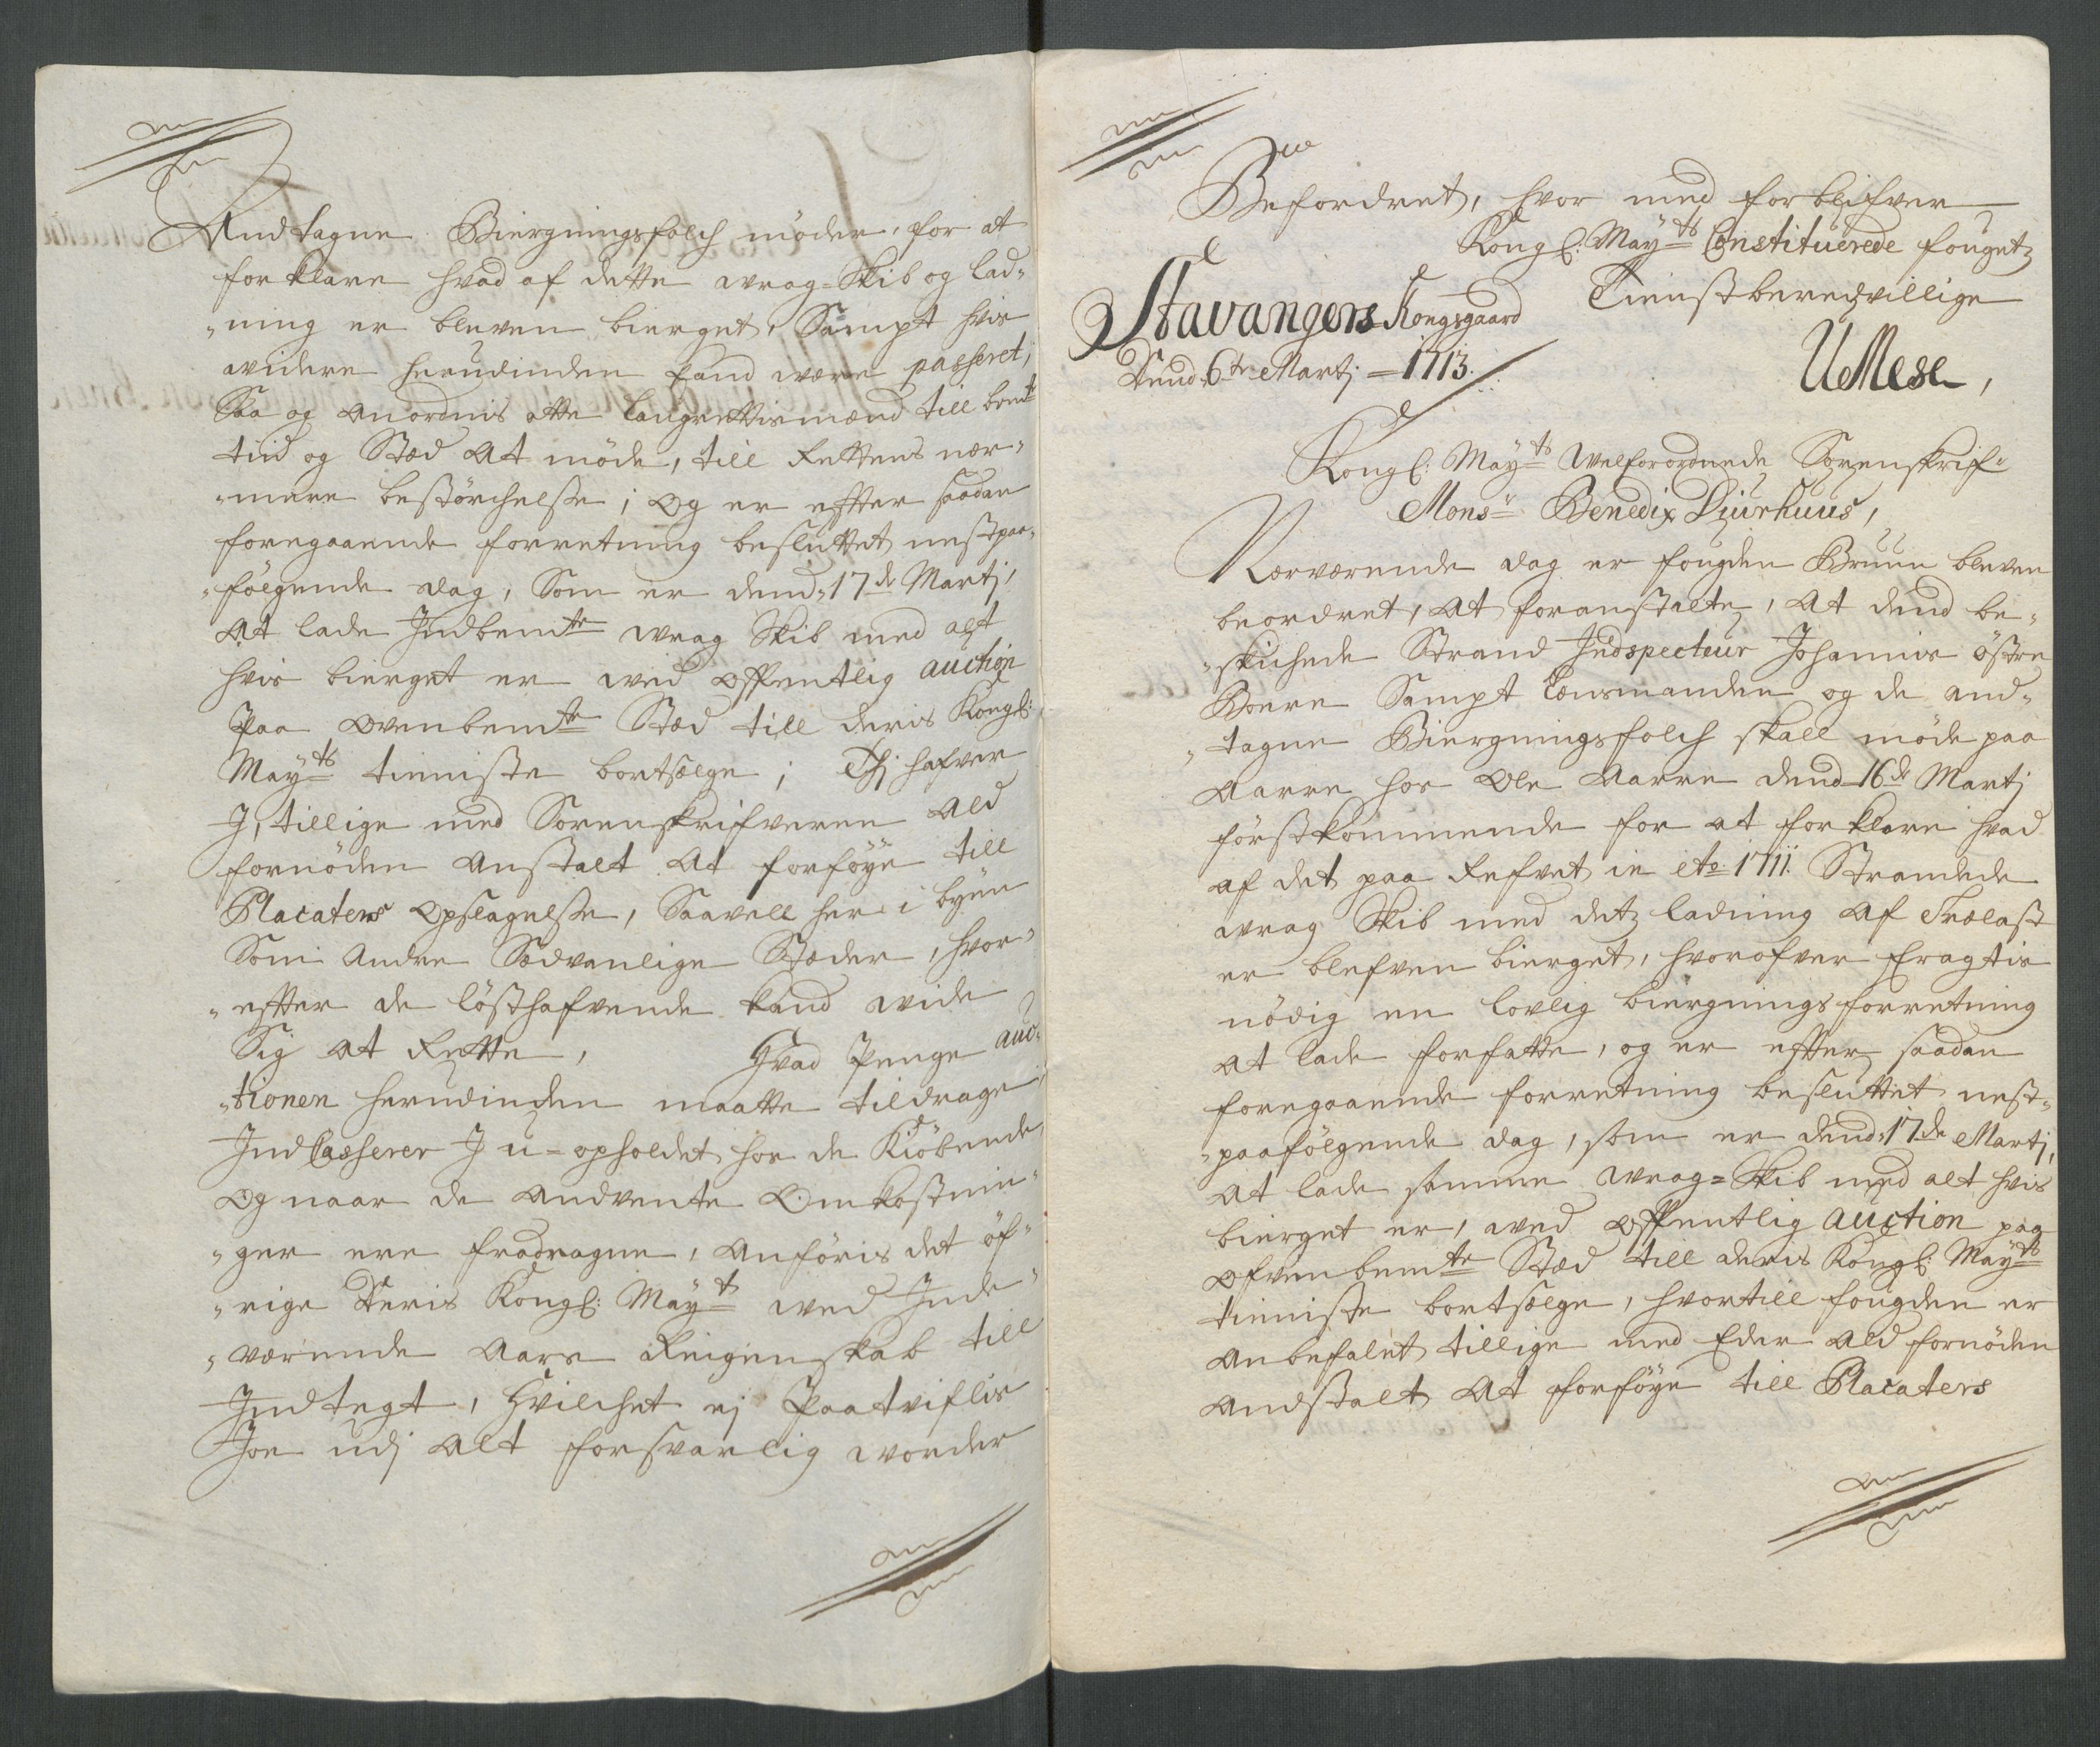 Andtagne Biergningsfolch möder, for at
forklare hvad af dette wrag-Skib og lad„
„ning er bleven bierget, Sampt hvis
widere herudinden kand være passeret,
Saa og anordnis otte laugrettismænd till bemte
tiid og Stæd At møde, till Rettens nær„
„mere bestørchelse; og er efter saadan
foregaaende forretning besluttet nestpaa„
„følgende dag, Som er dend 17de Martj,
At lade Indbemte wrag Skib med alt
hvis bierget er wed offentlig auction
Paa ovenbemte Stæd till deris Kongl:
Mayts tieniste bortsælge; Thj hafver
J, tillige med Sorenskrifveren Ald
fornøden Anstalt At forföye till
Placaters Opslagelse, Saavell her i byen
Som Andre Sædvanlige Stæder, hvor„
„efter de lösthafvende kand wide
Sig at Rette, Hvad Penge auc„
„tionen herudinden maatte tildrage,
Ind Casserer J u-opholdet hos de Kiöbende
Og naar de Andvente Omkostnin„
„ger ere fradragne, Anföris det öf„
„rige Deris Kongl: Mayt wed Inde„
„værende Aars Reigenskab till
Indtegt, Hvilchet ej Paatviflis
Joe udj Alt forsvarlig worder
Befordret, hvor med forblifver
Kongl: Mayts Constituerede fougetz
Tienstberedvillige
Stavangers Kongsgaard
Dend 6te Martj - 1713.
UMese,
Kongl: Mayts Welforordnede Sorenskrif„
Monsr Benedix Diurhuus,
Nærværende dag er fougden Bruun bleven
beordret, At foranstalte, At dend be„
„skichede Strand Indspecteur Johannis Östre
Boere Sampt Lensmanden og de and„
„tagne Biergningsfolch skall møde paa
Aarre hos Ole Aarre dend 16de Martj
förstkommende for at forklare hvad
af det paa Refvet in Ao. 1711. Strandede
wrag Skib med detz ladning af Trælast
er blefven bierget, hvorofver Eragtis
nödig en lovlig biergnings forretning
at lade forfatte, og er efter saadan
foregaaende forretning besluttet nest„
„paafölgende dag, som er dend 17de Martj,
at lade samme wrag=Skib med alt hvis
bierget er, wed offentlig auction paa
ofvenbemte Stæd till deris Kongl: Mayts
tieniste bortsælge, hvortill fougden er
anbefalet tillige med Eder Ald fornøden
andstalt At forföye till Placaters